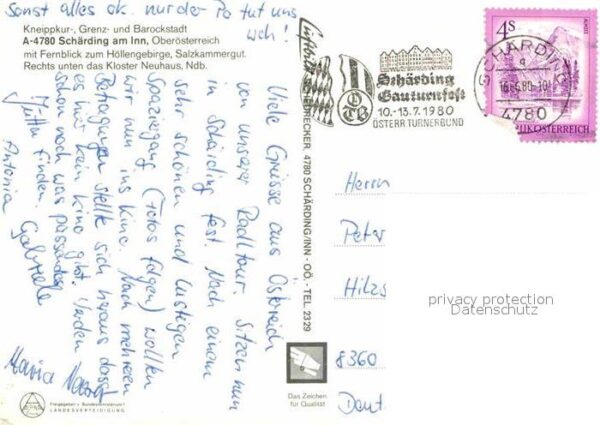 Sonst alles ok. nur der Po tut uns
weh!
Kneippkur-, Grenz- und Barockstadt
A-4780 Schärding am Inn, Oberösterreich
mit Fernblick zum Höllengebirge, Salzkammergut.
Rechts unten das Kloster Neuhaus, Ndb.
Viele Grüsse aus Östreich
von unserer Radltour. Sitzen nun
in Schärding fest. Nach einem
sehr schönen und lustigen
Spaziergang (Fotos folgen) wollten
wir nun ins Kino. Nach mehreren
Befragungen stellte sich heraus dass
es hier kein Kino gibt. Werden
schon noch was passendes
finden.
Gabriele
Antonia
Maria
Freigegeben v. Bundesministerium f.
LANDESVERTEIDIGUNG
4780 SCHÄRDING/INN - OÖ. - TEL. 2329
Das Zeichen
für Qualität
Schärding
Gauturnfest
10.-13.7.1980
ÖSTERR TURNERBUND
ÖTB
SCHÄRDING
4780
4S
REPUBLIK ÖSTERREICH
Herrn
Peter
Hilz
8360
privacy protection
Datenschutz